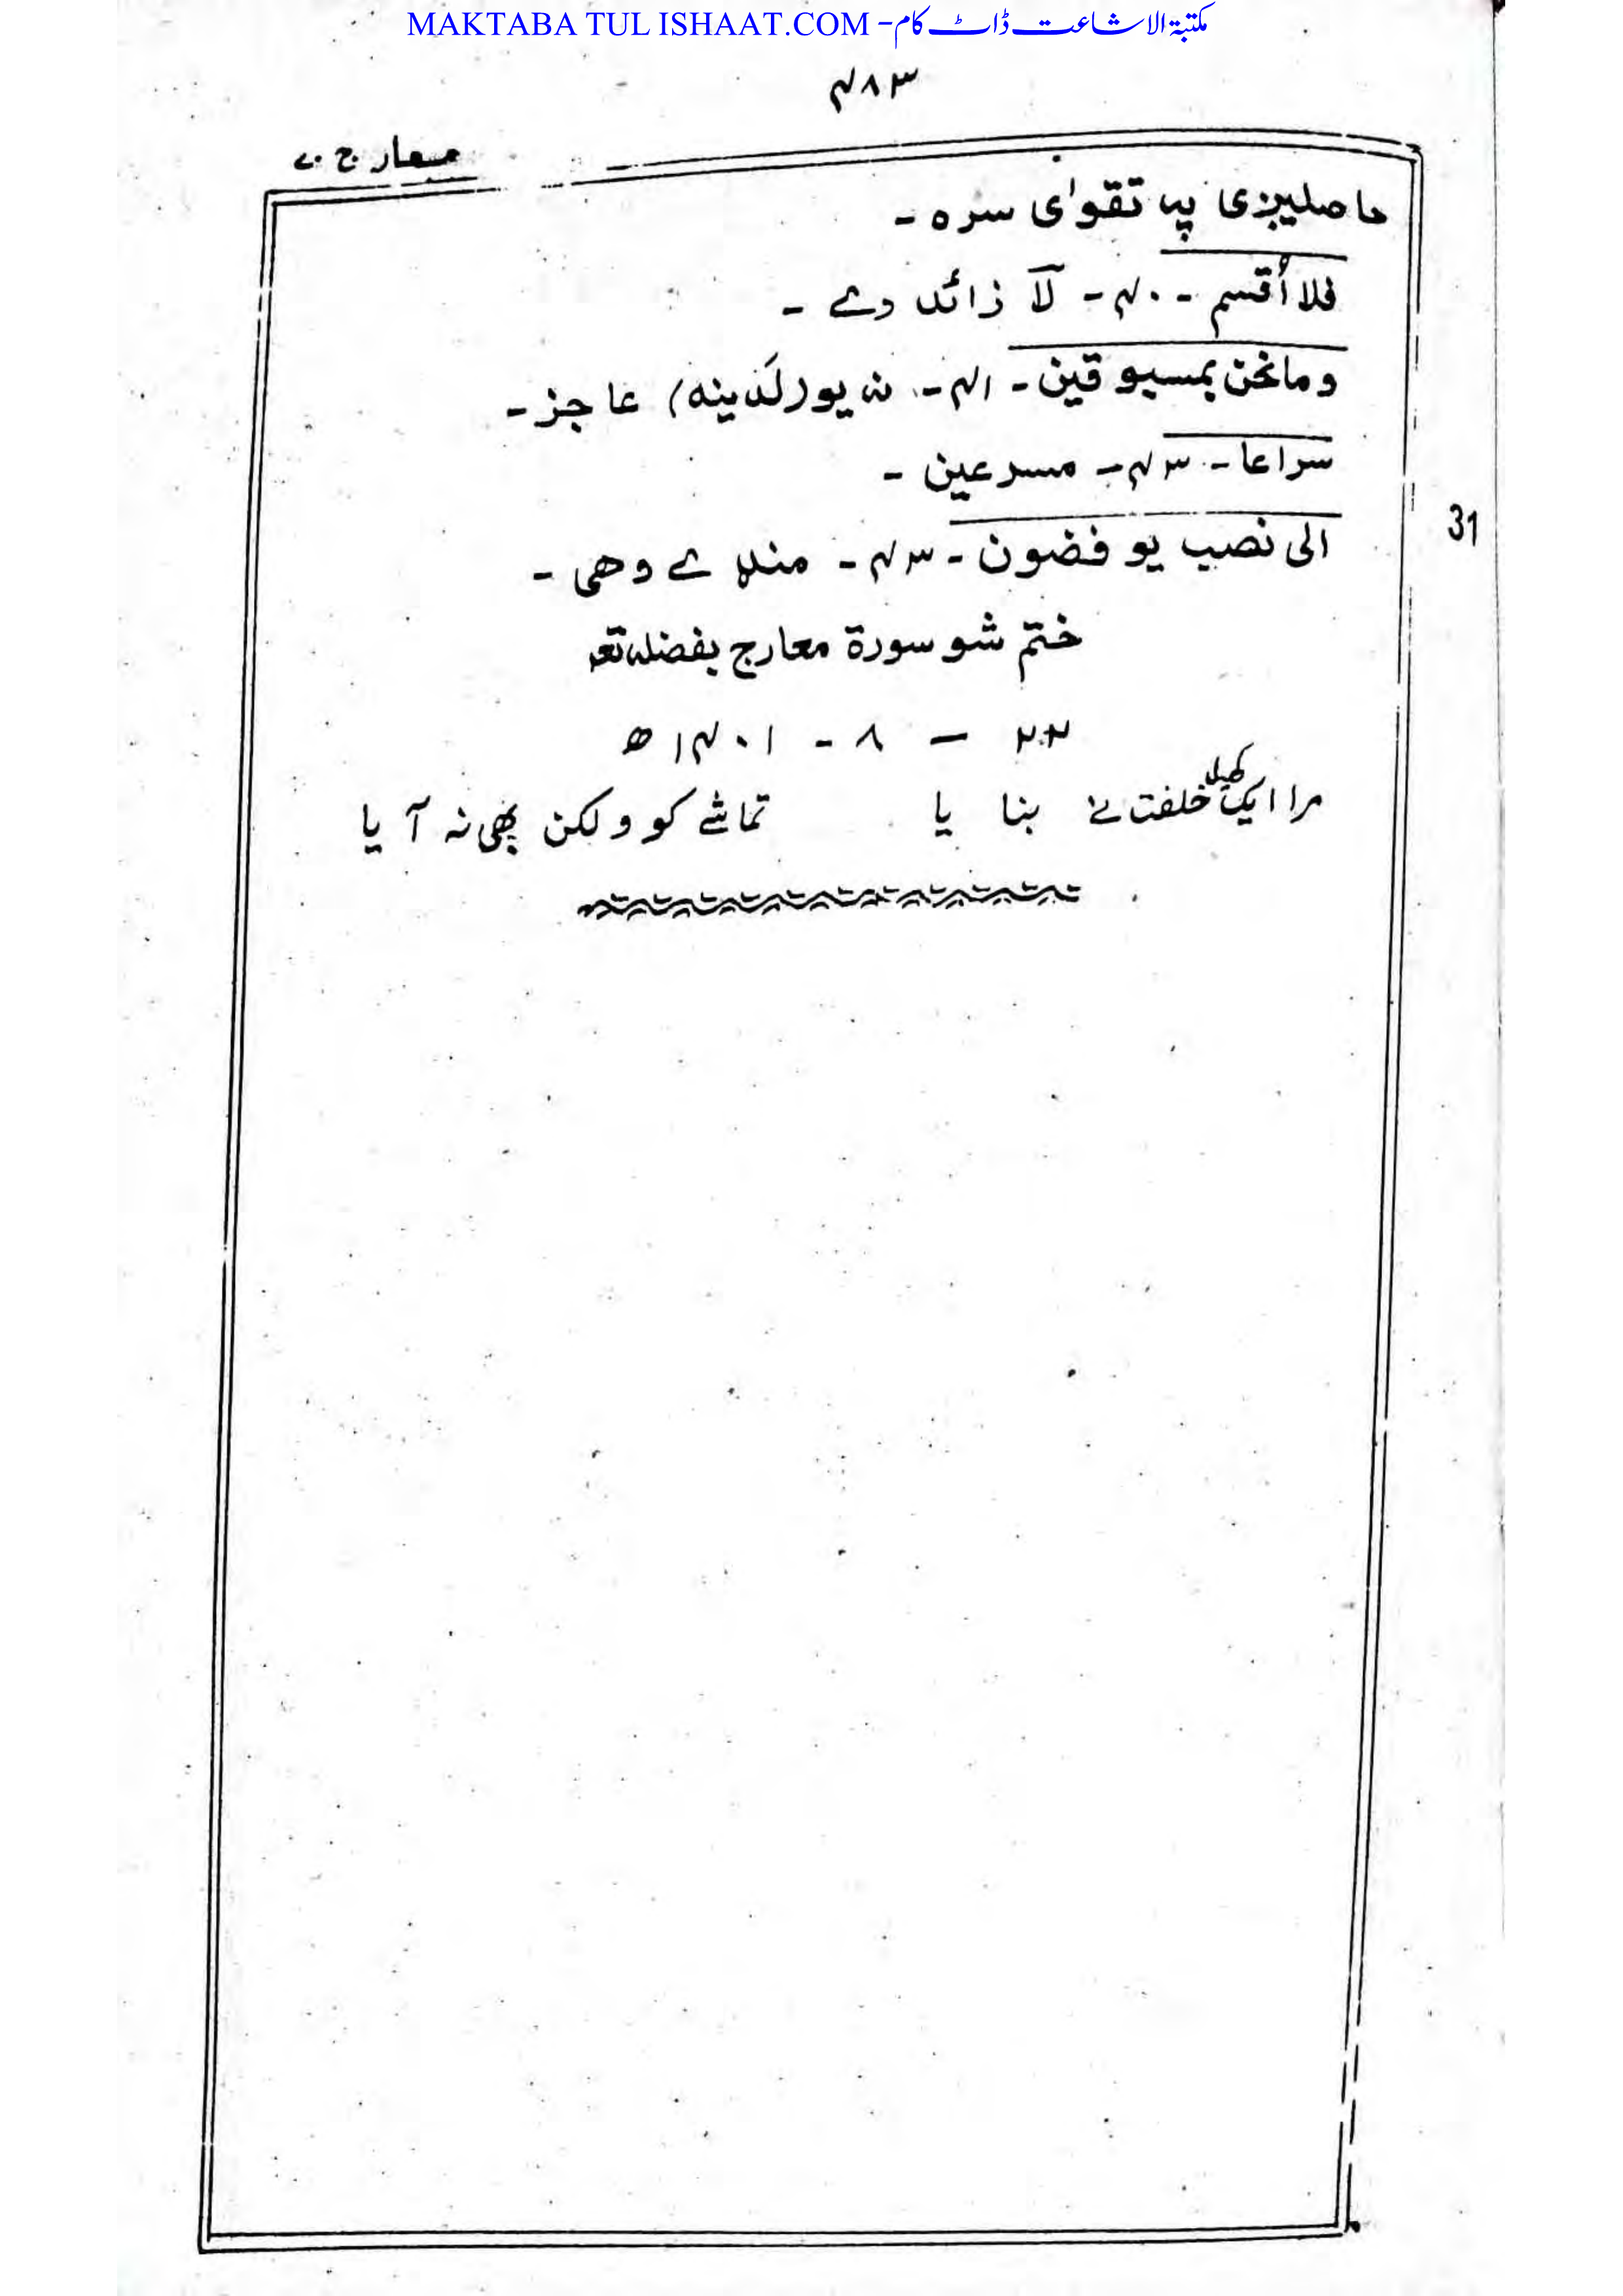 MAKTABA TUL ISHAAT.COM -مکتبۃ الاشاعت ڈاٹ کام
۴۸۳
معارج ۷۰
حاصلیږی په تقوای سره -
فلا أقسم - ۴۰ - لآ زائد دے -
وما نحن بمسبوقین - ۴۱ - نه یو رلدینه) عاجز -
سراعا - ۴۳ - مسرعین -
31
الی نصب یوفضون - ۴۳ - منډے وهی -
ختم شو سورة معارج بفضله تعہ
۲۲ - ۸ - ۱۴۰۱ ھ
مرا ایک کھیل خلفت نے بنا یا تماشے کو ولکن بھی نہ آیا